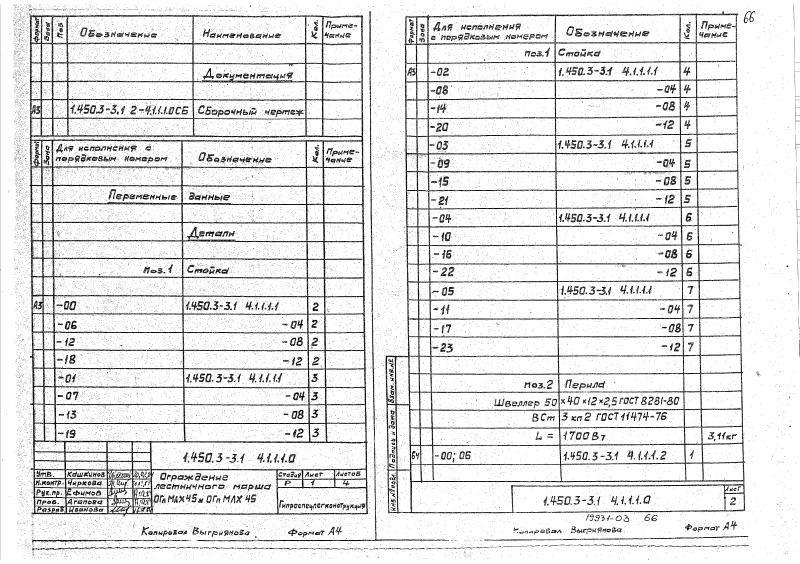 Формат Зона Поз Обозначение Наименование Кол. Приме-чание
Документация
А3 1.450.3-3.1 2-4.1.1.1.0СБ Сборочный чертеж
Формат Зона Для исполнения с порядковым номером Обозначение Кол. Приме-чание
Переменные данные
Детали
поз.1 Стойка
А3 -00 1.450.3-3.1 4.1.1.1.1 2
-06 -04 2
-12 -08 2
-18 -12 2
-01 1.450.3-3.1 4.1.1.1.1 3
-07 -04 3
-13 -08 3
-19 -12 3
1.450.3-3.1 4.1.1.0
Утв. Кашкинов
Н.контр. Чиркова
Рук.пр. Ефимов
Пров. Агапова
Разраб. Иванова
Ограждение
лестничного марша
ОГп МАХ 45 и ОГп МЛХ 45
Стадия Лист Листов
Р 1 4
Гипроспецлегконструкция
Копировал Выгриянова Формат А4
66
Формат Зона Для исполнения с порядковым номером Обозначение Кол. Приме-чание
поз.1 Стойка
А3 -02 1.450.3-3.1 4.1.1.1.1 4
-08 -04 4
-14 -08 4
-20 -12 4
-03 1.450.3-3.1 4.1.1.1.1 5
-09 -04 5
-15 -08 5
-21 -12 5
-04 1.450.3-3.1 4.1.1.1.1 6
-10 -04 6
-16 -08 6
-22 -12 6
-05 1.450.3-3.1 4.1.1.1.1 7
-11 -04 7
-17 -08 7
-23 -12 7
поз.2 Перила
Швеллер 50×40×12×2,5 ГОСТ 8281-80
ВСт 3 кп 2 ГОСТ 11474-76
L = 1700 Вт 3,11кг
БЧ -00; 06 1.450.3-3.1 4.1.1.1.2 1
Инв.№подл. Подпись и дата Взам.инв.№
1.450.3-3.1 4.1.1.0
Лист
2
19931-03 66
Копировал Выгриянова Формат А4